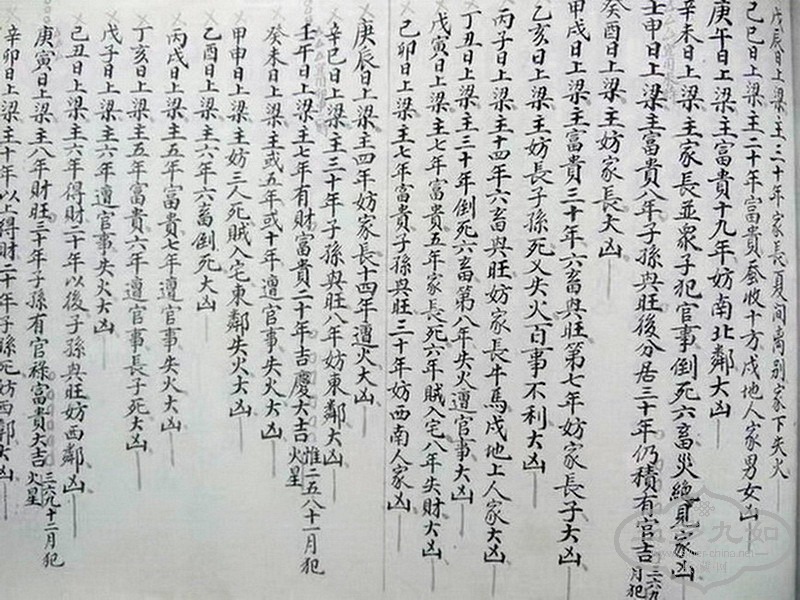 戊辰日上梁主三十年家長夏間离别家下失火
己巳日上梁主二十年富貴套收十方戌地人家男女凶
庚午日上梁主富貴十九年妨南北鄰大凶
辛未日上梁主家長並眾子犯官事倒死六畜災絶見家凶
壬申日上梁主富貴八年子孫與旺後分居三十年仍積有官吉 三六九月犯
癸酉日上梁主妨家長大凶
甲戌日上梁主富貴三十年六畜與旺第七年妨家長子大凶
乙亥日上梁主妨長子孫死又失火百事不利大凶
丙子日上梁主十四年六畜與旺妨家長牛馬戌地上人家大凶
丁丑日上梁主三十年倒死六畜第八年失火遭官事大凶
戊寅日上梁主七年富貴五年家長死六年賊入宅八年失財大凶
己卯日上梁主七年富貴子孫與旺三十年妨西南人家凶
庚辰日上梁主四年妨家長十四年遭火大凶
辛巳日上梁主三十年子孫與旺八年妨東鄰大凶
壬午日上梁主七年有財富貴二十年吉慶大吉 惟二五八十一月犯火星
癸未日上梁主或五年或十年遭官事失火大凶
甲申日上梁主妨三人死賊入宅東鄰失火大凶
乙酉日上梁主六年六畜倒死大凶
丙戌日上梁主五年富貴七年遭官事失火大凶
丁亥日上梁主五年富貴六年遭官事長子死大凶
戊子日上梁主六年遭官事失火大凶
己丑日上梁主六年得財二十年以後子孫與旺妨西鄰凶
庚寅日上梁主八年財旺三十年子孫有官祿富貴大吉 三六九十二月犯火星
辛卯日上梁主十年以上得財二十年子孫死妨西鄰大凶